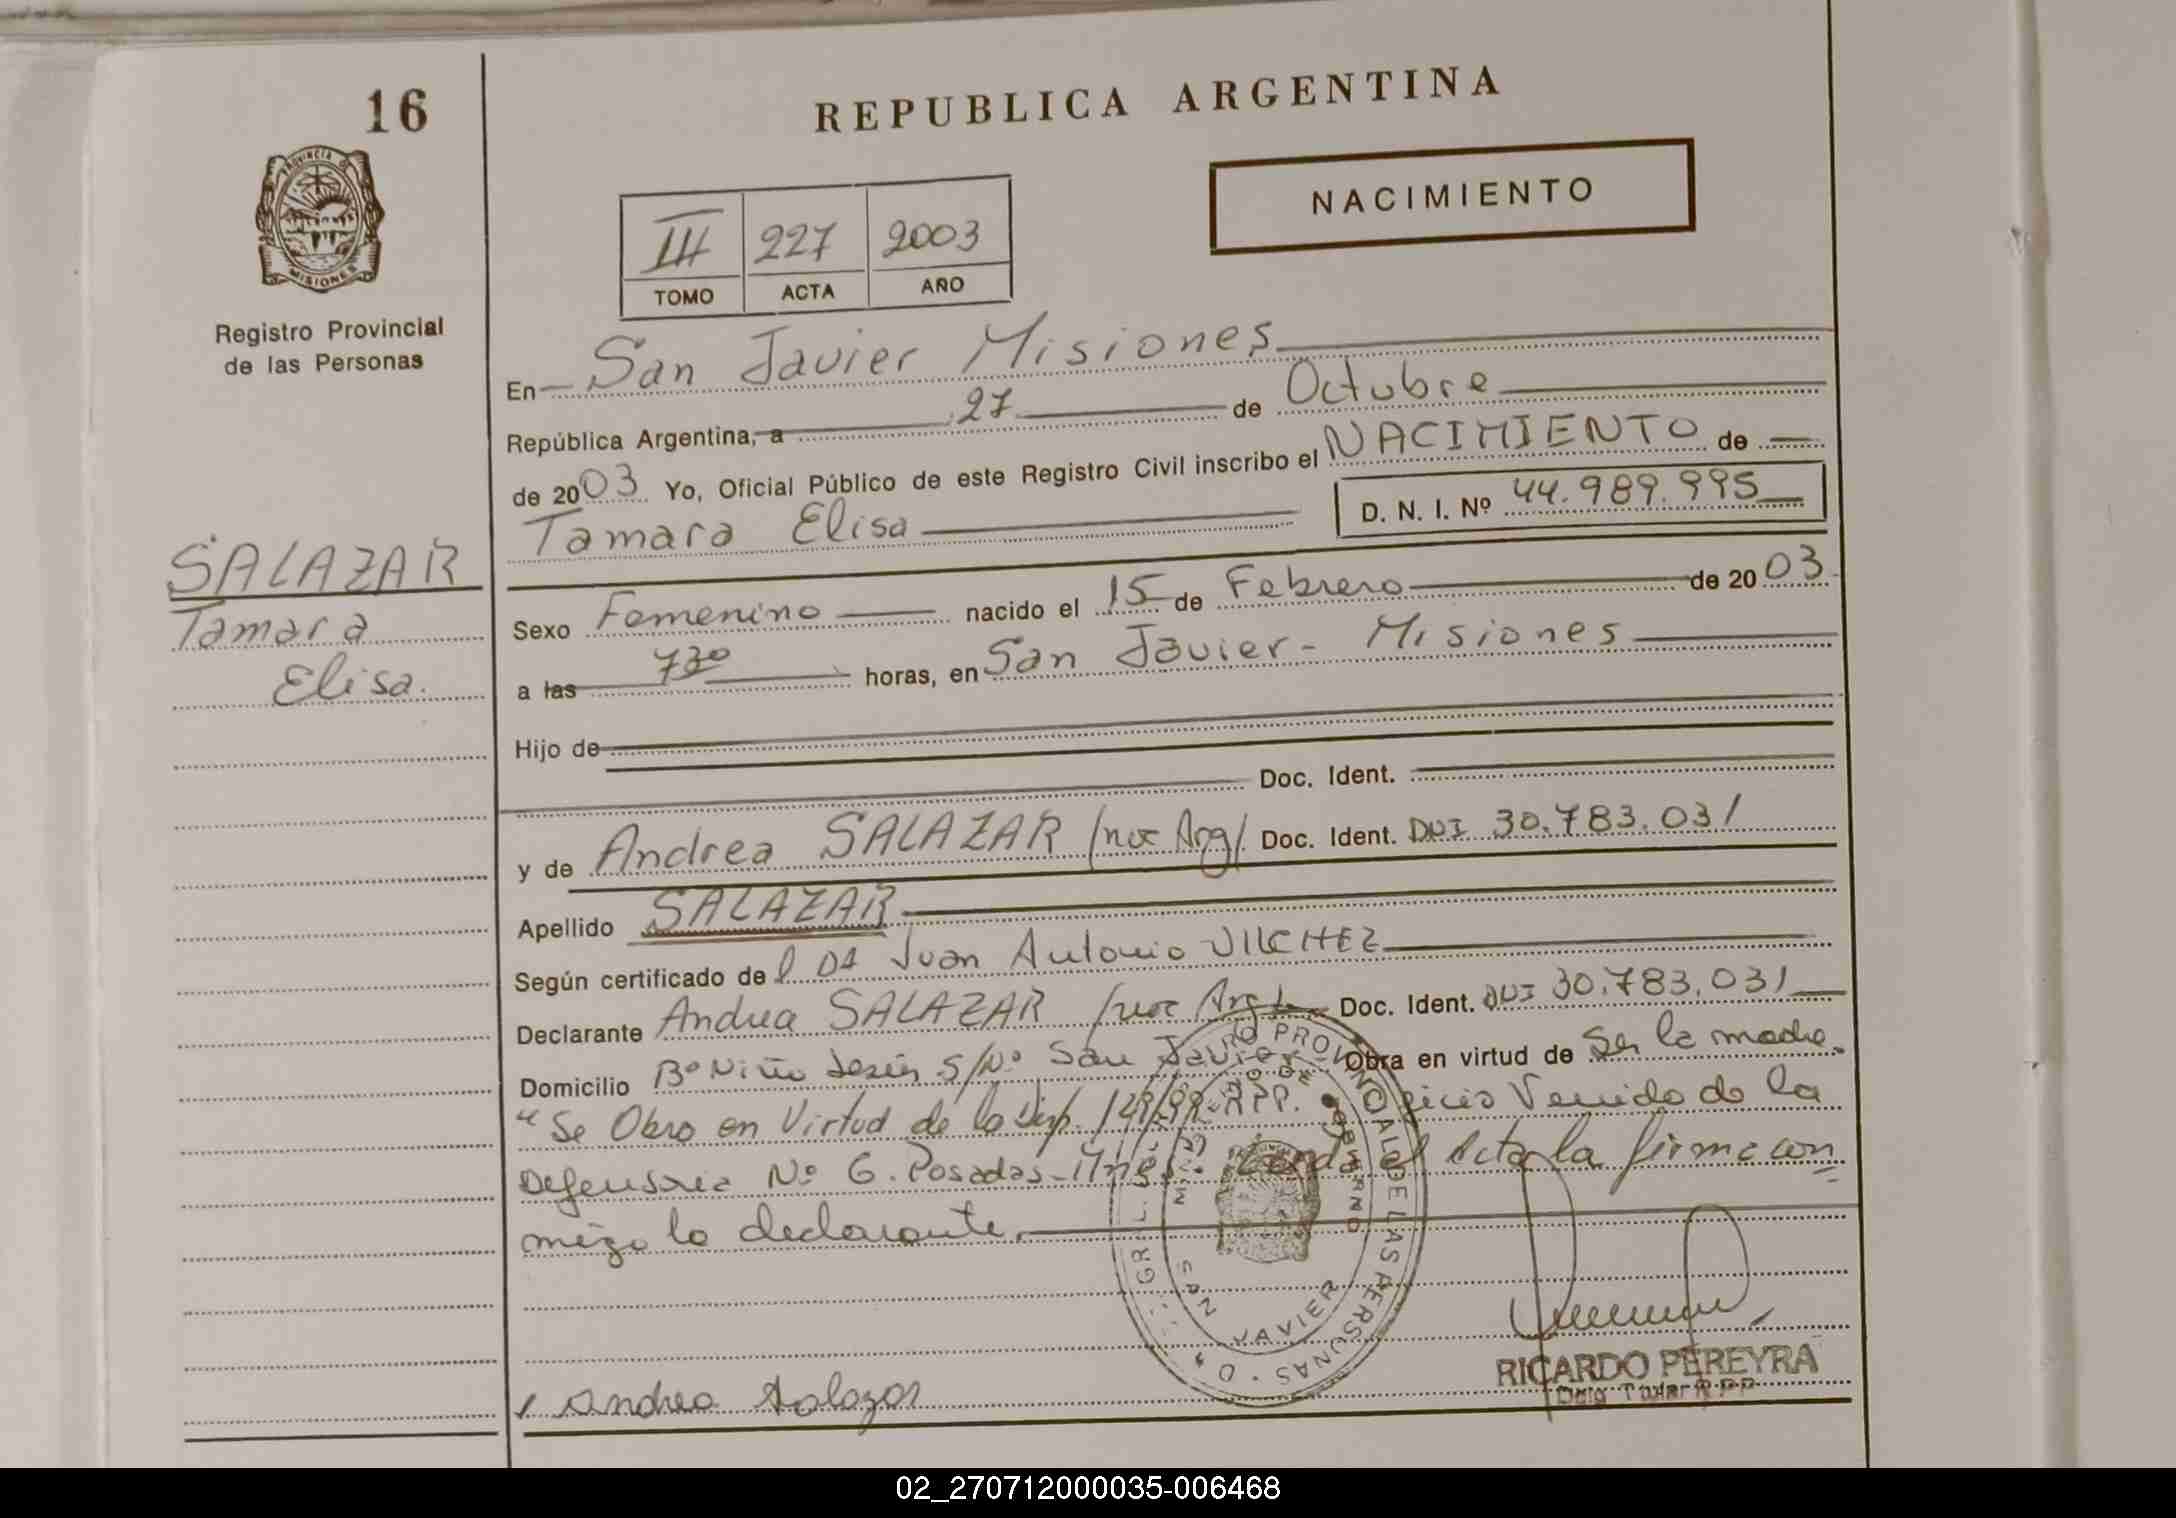 16
REPUBLICA ARGENTINA
NACIMIENTO
PROVINCIA DE
MISIONES
III 227 2003
TOMO ACTA AÑO
Registro Provincial
de las Personas
En San Javier Misiones
República Argentina, a 27 de Octubre
de 2003 Yo, Oficial Público de este Registro Civil inscribo el NACIMIENTO de
Tamara Elisa D. N. I. Nº 44.989.995
SALAZAR
Tamara
Elisa.
Sexo Femenino nacido el 15 de Febrero de 2003
a las 7³⁰ horas, en San Javier - Misiones
Hijo de
Doc. Ident.
y de Andrea SALAZAR /nac Arg/ Doc. Ident. DNI 30.783.031
Apellido SALAZAR
Según certificado del Dr Juan Antonio VILCHEZ
Declarante Andrea SALAZAR /nac Arg/ Doc. Ident. DNI 30.783.031
Domicilio Bº Niño Jesús S/Nº San Javier Obra en virtud de Ser la madre.
"Se Obro en Virtud de la Disp. 149/99-RPP. Oficio Venido de la
Defensoria Nº 6. Posadas - Mnes. el Acta la firma con
migo la declarante.
REGISTRO PROVINCIAL DE LAS PERSONAS
SAN JAVIER
Andrea Salazar
RICARDO PEREYRA
Deleg. Titular R.P.P
02_270712000035-006468